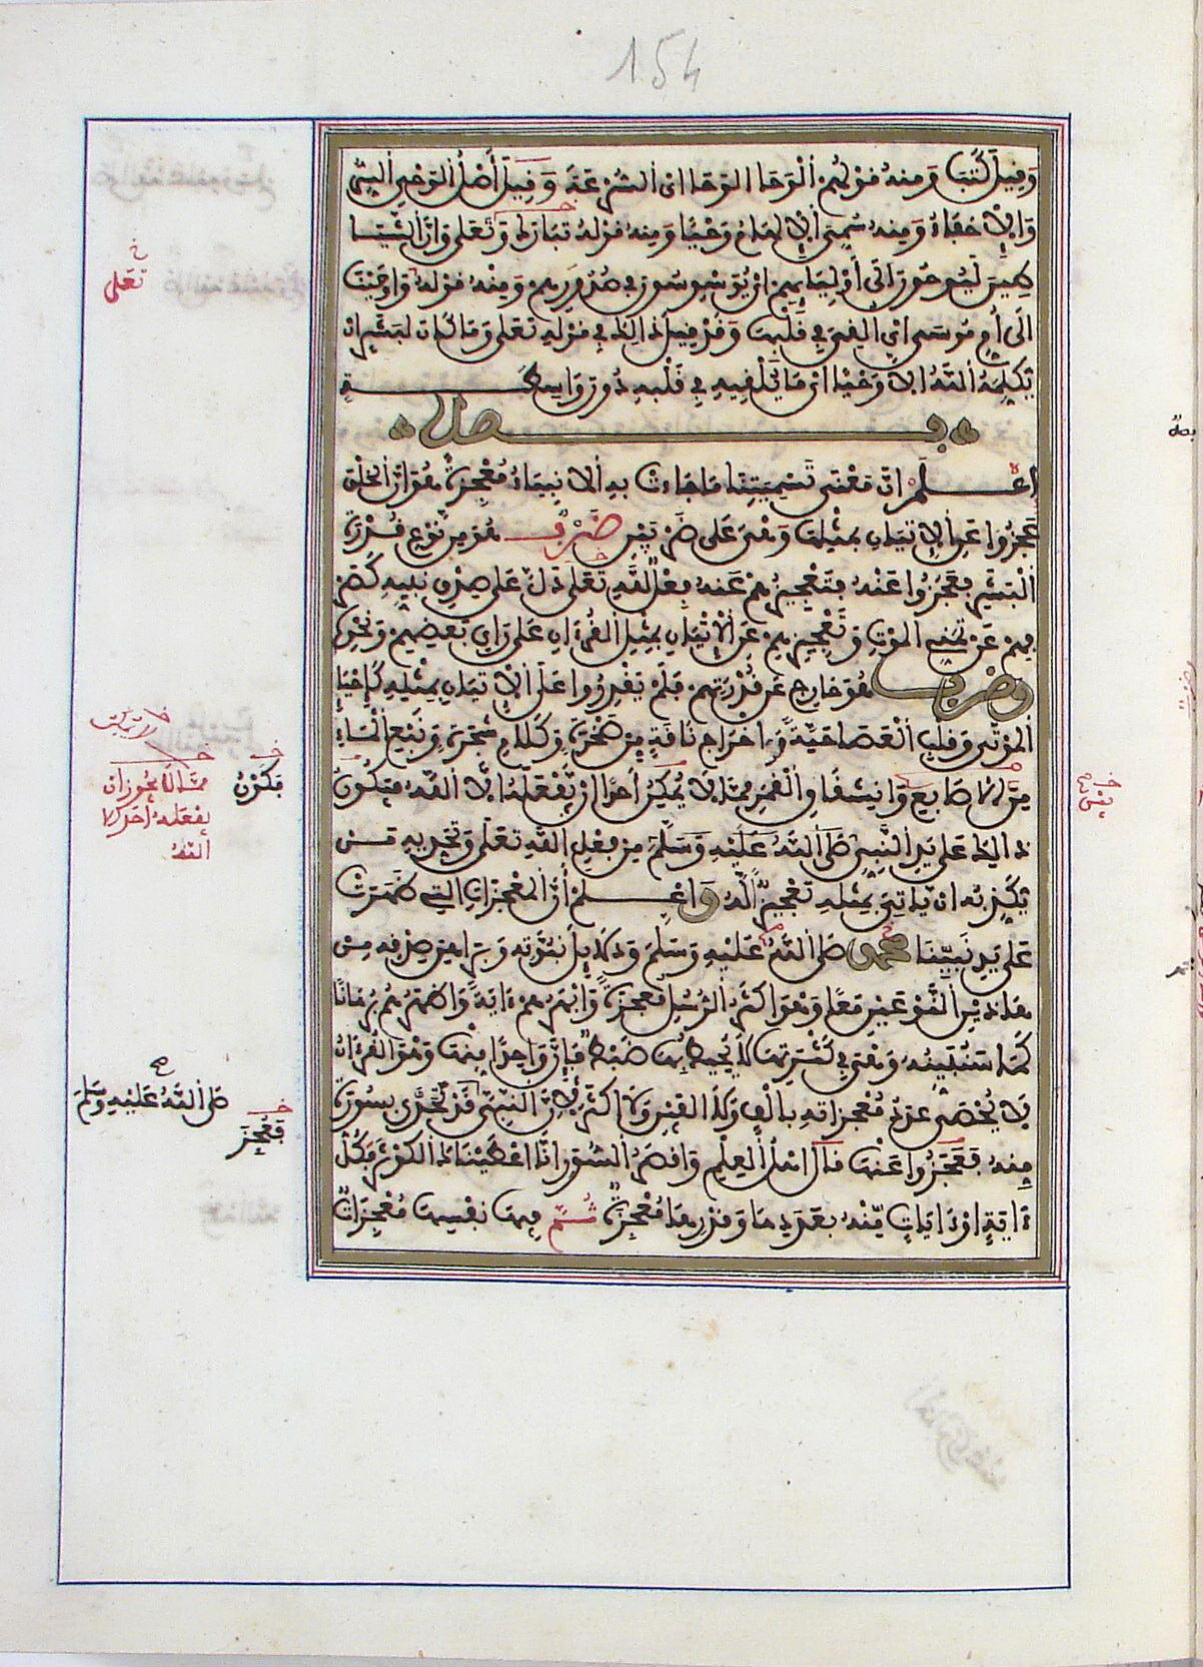 154
وَقِيلَ كَتَبَ وَمِنْهُ قَوْلُهُمْ الْوَحَا الْوَحَا أي السُّرْعَةَ وَقِيلَ أَصْلُ الْوَحْيِ السِّرُّ
وَالْإِخْفَاءُ وَمِنْهُ سُمِّيَ الْإِلْهَامُ وَحْيًا وَمِنْهُ قَوْلُهُ تَبَارَكَ وَتَعَلَى وَإِنَّ الشَّيَـٰ
طِينَ لَيُوحُونَ إِلَى أَوْلِيَائِهِمْ أيْ يُوَسْوِسُونَ فِي صُدُورِهِمْ وَمِنْهُ قَوْلُهُ وَأَوْحَيْنَا
إِلَى أُمِّ مُوسَى أي أُلْقِيَ فِي قَلْبِهَا وَقَدْ قِيلَ ذَالِكَ فِي قَوْلِهِ تَعَلَى وَمَا كَانَ لِبَشَرٍ ان
يُكَلِّمَهُ اللَّهُ إِلَّا وَحْيًا أي مَا يُلْقِيهِ فِي قَلْبِهِ دُونَ وَاسِطَـــةٍ
فـصل
اعْـلَمْ أنَّ مَعْنَى تَسْمِيَتِنَا مَا جَاءَتْ بِهِ الْأَنْبِيَاءُ مُعْجِزَةً هُوَ أنَّ الْخَلْقَ
عَجَزُوا عَنِ الْإِتْيَانِ بِمِثْلِهَا وَهْيَ عَلَى ضَرْبَيْنِ ضَرْبٌ هُوَ مِن نَّوْعِ قُدْرَةِ
الْبَشَرِ فَعَجَزُوا عَنْهُ فَتَعْجِيزُهُمْ عَنْهُ فِعْلٌ لِلَّهِ تَعَلَى دَلَّ عَلَى صِدْقِ نَبِيِّهِ كَصَرْ
فِهِمْ عَنْ تَمَنِّي الْمَوْتِ وَتَعْجِيزِهِمْ عَنِ الْإِتْيَانِ بِمِثْلِ الْقُرْءَانِ عَلَى رَأْيِ بَعْضِهِمْ وَنَحْوِهِ
وَضَرْبٌ هُوَ خَارِجٌ عَن قُدْرَتِهِمْ فَلَمْ يَقْدِرُوا عَلَى الْإِتْيَانِ بِمِثْلِهِ كَإِحْيَاءِ
الْمَوْتَى وَقَلْبِ الْعَصَا حَيَّةً وَإِخْرَاجِ نَاقَةٍ مِن صَخْرَةٍ وَكَلَامِ شَجَرَةٍ وَنَبْعِ الْمَاءِ
مِنَ الْأَصَابِعِ وَانْشِقَاقِ الْقَمَرِ مِمَّا لَا يُمْكِنُ أَحَدًا أَنْ يَفْعَلَهُ إِلَّا اللَّهُ فَيَكُونُ
ذَالِكَ عَلَى يَدِ النَّبِيِّ صَلَّى اللَّهُ عَلَيْهِ وَسَلَّمَ مِن فِعْلِ اللَّهِ تَعَلَى وَتَحَدِّيهِ مَـنْ
يُكَذِّبُهُ أَنْ يَأْتِيَ بِمِثْلِهِ تَعْجِيزٌ لَّهُ وَاعْـلَمْ أَنَّ الْمُعْجِزَاتِ الَّتِي ظَهَرَتْ
عَلَى يَدِ نَبِيِّنَا مُحَمَّدٍ صَلَّى اللَّهُ عَلَيْهِ وَسَلَّمَ وَدَلَائِلَ نُبُوَّتِهِ وَبَرَاهِينَ صِدْقِهِ مِـنْ
هَذَيْنِ النَّوْعَيْنِ مَعًا وَهْوَ أَكْثَرُ الرُّسُلِ مُعْجِزَةً وَأَبْهَرُهُمْ ءَايَةً وَأَظْهَرُهُمْ بُرْهَانًا
كَمَا سَنُبَيِّنُهُ وَهْيَ فِي كَثْرَتِهَا لَا يُحِيطُ بِهَا ضَبْطٌ فَإِنَّ وَاحِدًا مِنْهَا وَهْوَ الْقُرْءَانُ
لَا يُحْصَى عَدَدُ مُعْجِزَاتِهِ بِأَلْفٍ وَلَا أَلْفَيْنِ وَلَا أَكْثَرَ لِأَنَّ النَّبِيَّ قَدْ تَحَدَّى بِسُورَةٍ
مِنْهُ فَعَجَزُوا عَنْهَا قَالَ أَهْلُ الْعِلْمِ وَأَقْصَرُ السُّوَرِ إِنَّا أَعْطَيْنَاكَ الْكَوْثَرَ فَكُلُّ
ءَايَةٍ أَوْ ءَايَاتٍ مِّنْهُ بِعَدَدِهَا وَقَدْرِهَا مُعْجِزَةٌ ثُـمَّ فِيهَا نَفْسِهَا مُعْجِزَاتٌ
خ
تَعَلَى
خ
فَكَوْن
خ
مِمَّا لَا يَجُوزُ أَنْ
يَفْعَلَهُ أَحَدٌ إِلَّا
اللَّهُ
صح
صَلَّى اللَّهُ عَلَيْهِ وَسَلَّمَ
خ
فَعُجِزَ